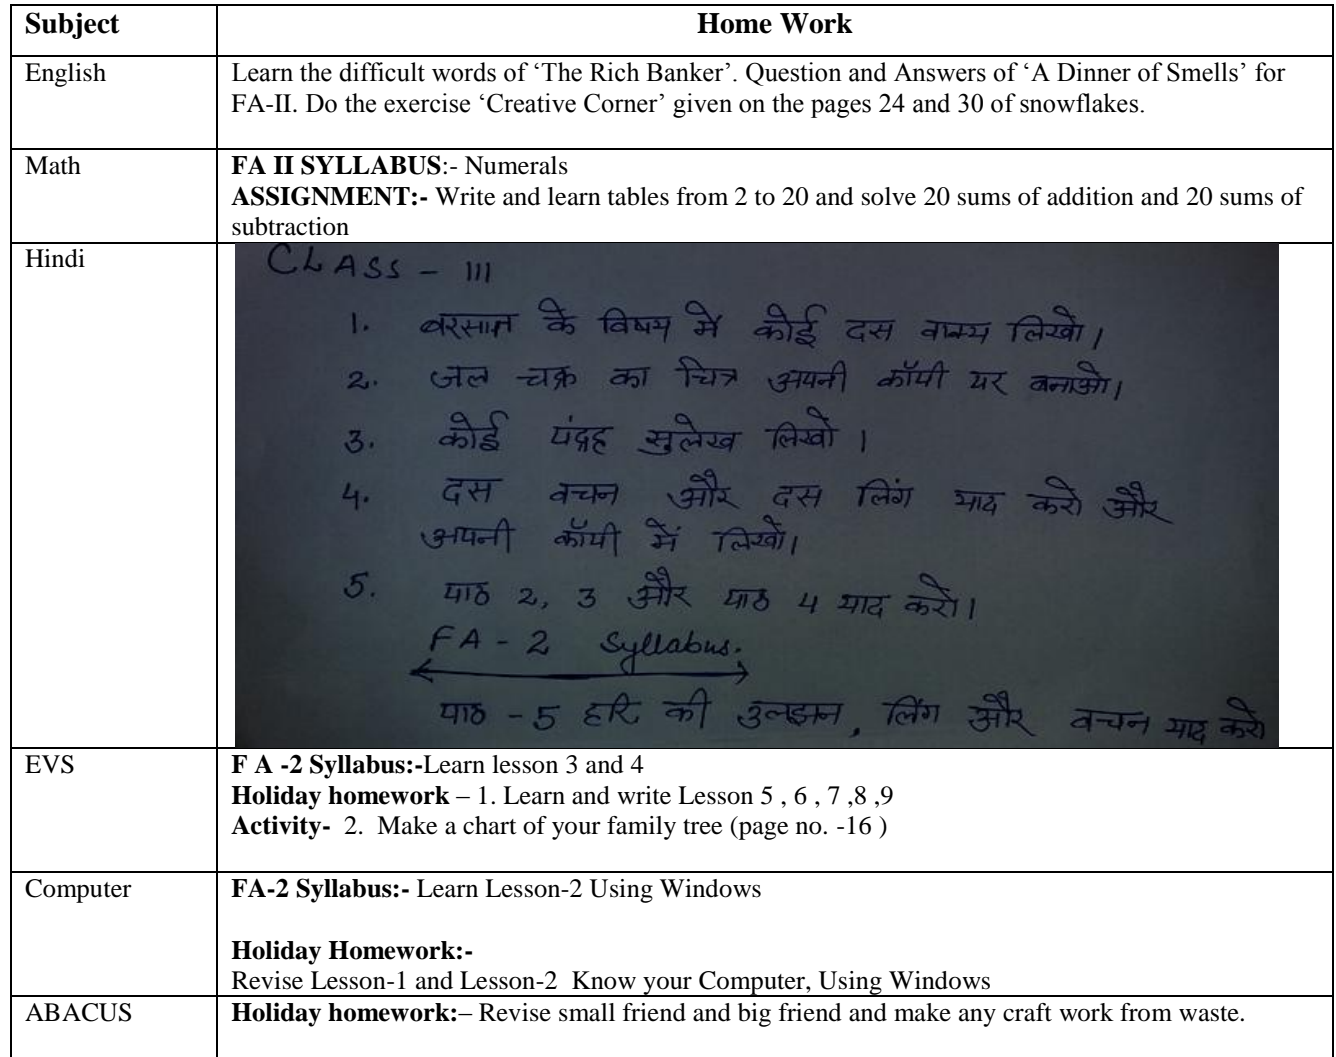 Subject Home Work
English Learn the difficult words of ‘The Rich Banker’. Question and Answers of ‘A Dinner of Smells’ for
FA-II. Do the exercise ‘Creative Corner’ given on the pages 24 and 30 of snowflakes.
Math FA II SYLLABUS:- Numerals
ASSIGNMENT:- Write and learn tables from 2 to 20 and solve 20 sums of addition and 20 sums of
subtraction
Hindi CLASS - III
1. बरसात के विषय में कोई दस वाक्य लिखो।
2. जल चक्र का चित्र अपनी कॉपी पर बनाओ।
3. कोई पंद्रह सुलेख लिखो ।
4. दस वचन और दस लिंग याद करो और
अपनी कॉपी में लिखो।
5. पाठ 2, 3 और पाठ 4 याद करो।
FA - 2 Syllabus.
पाठ - 5 हरि की उलझन, लिंग और वचन याद करो
EVS F A -2 Syllabus:-Learn lesson 3 and 4
Holiday homework – 1. Learn and write Lesson 5 , 6 , 7 ,8 ,9
Activity- 2. Make a chart of your family tree (page no. -16 )
Computer FA-2 Syllabus:- Learn Lesson-2 Using Windows
Holiday Homework:-
Revise Lesson-1 and Lesson-2 Know your Computer, Using Windows
ABACUS Holiday homework:– Revise small friend and big friend and make any craft work from waste.